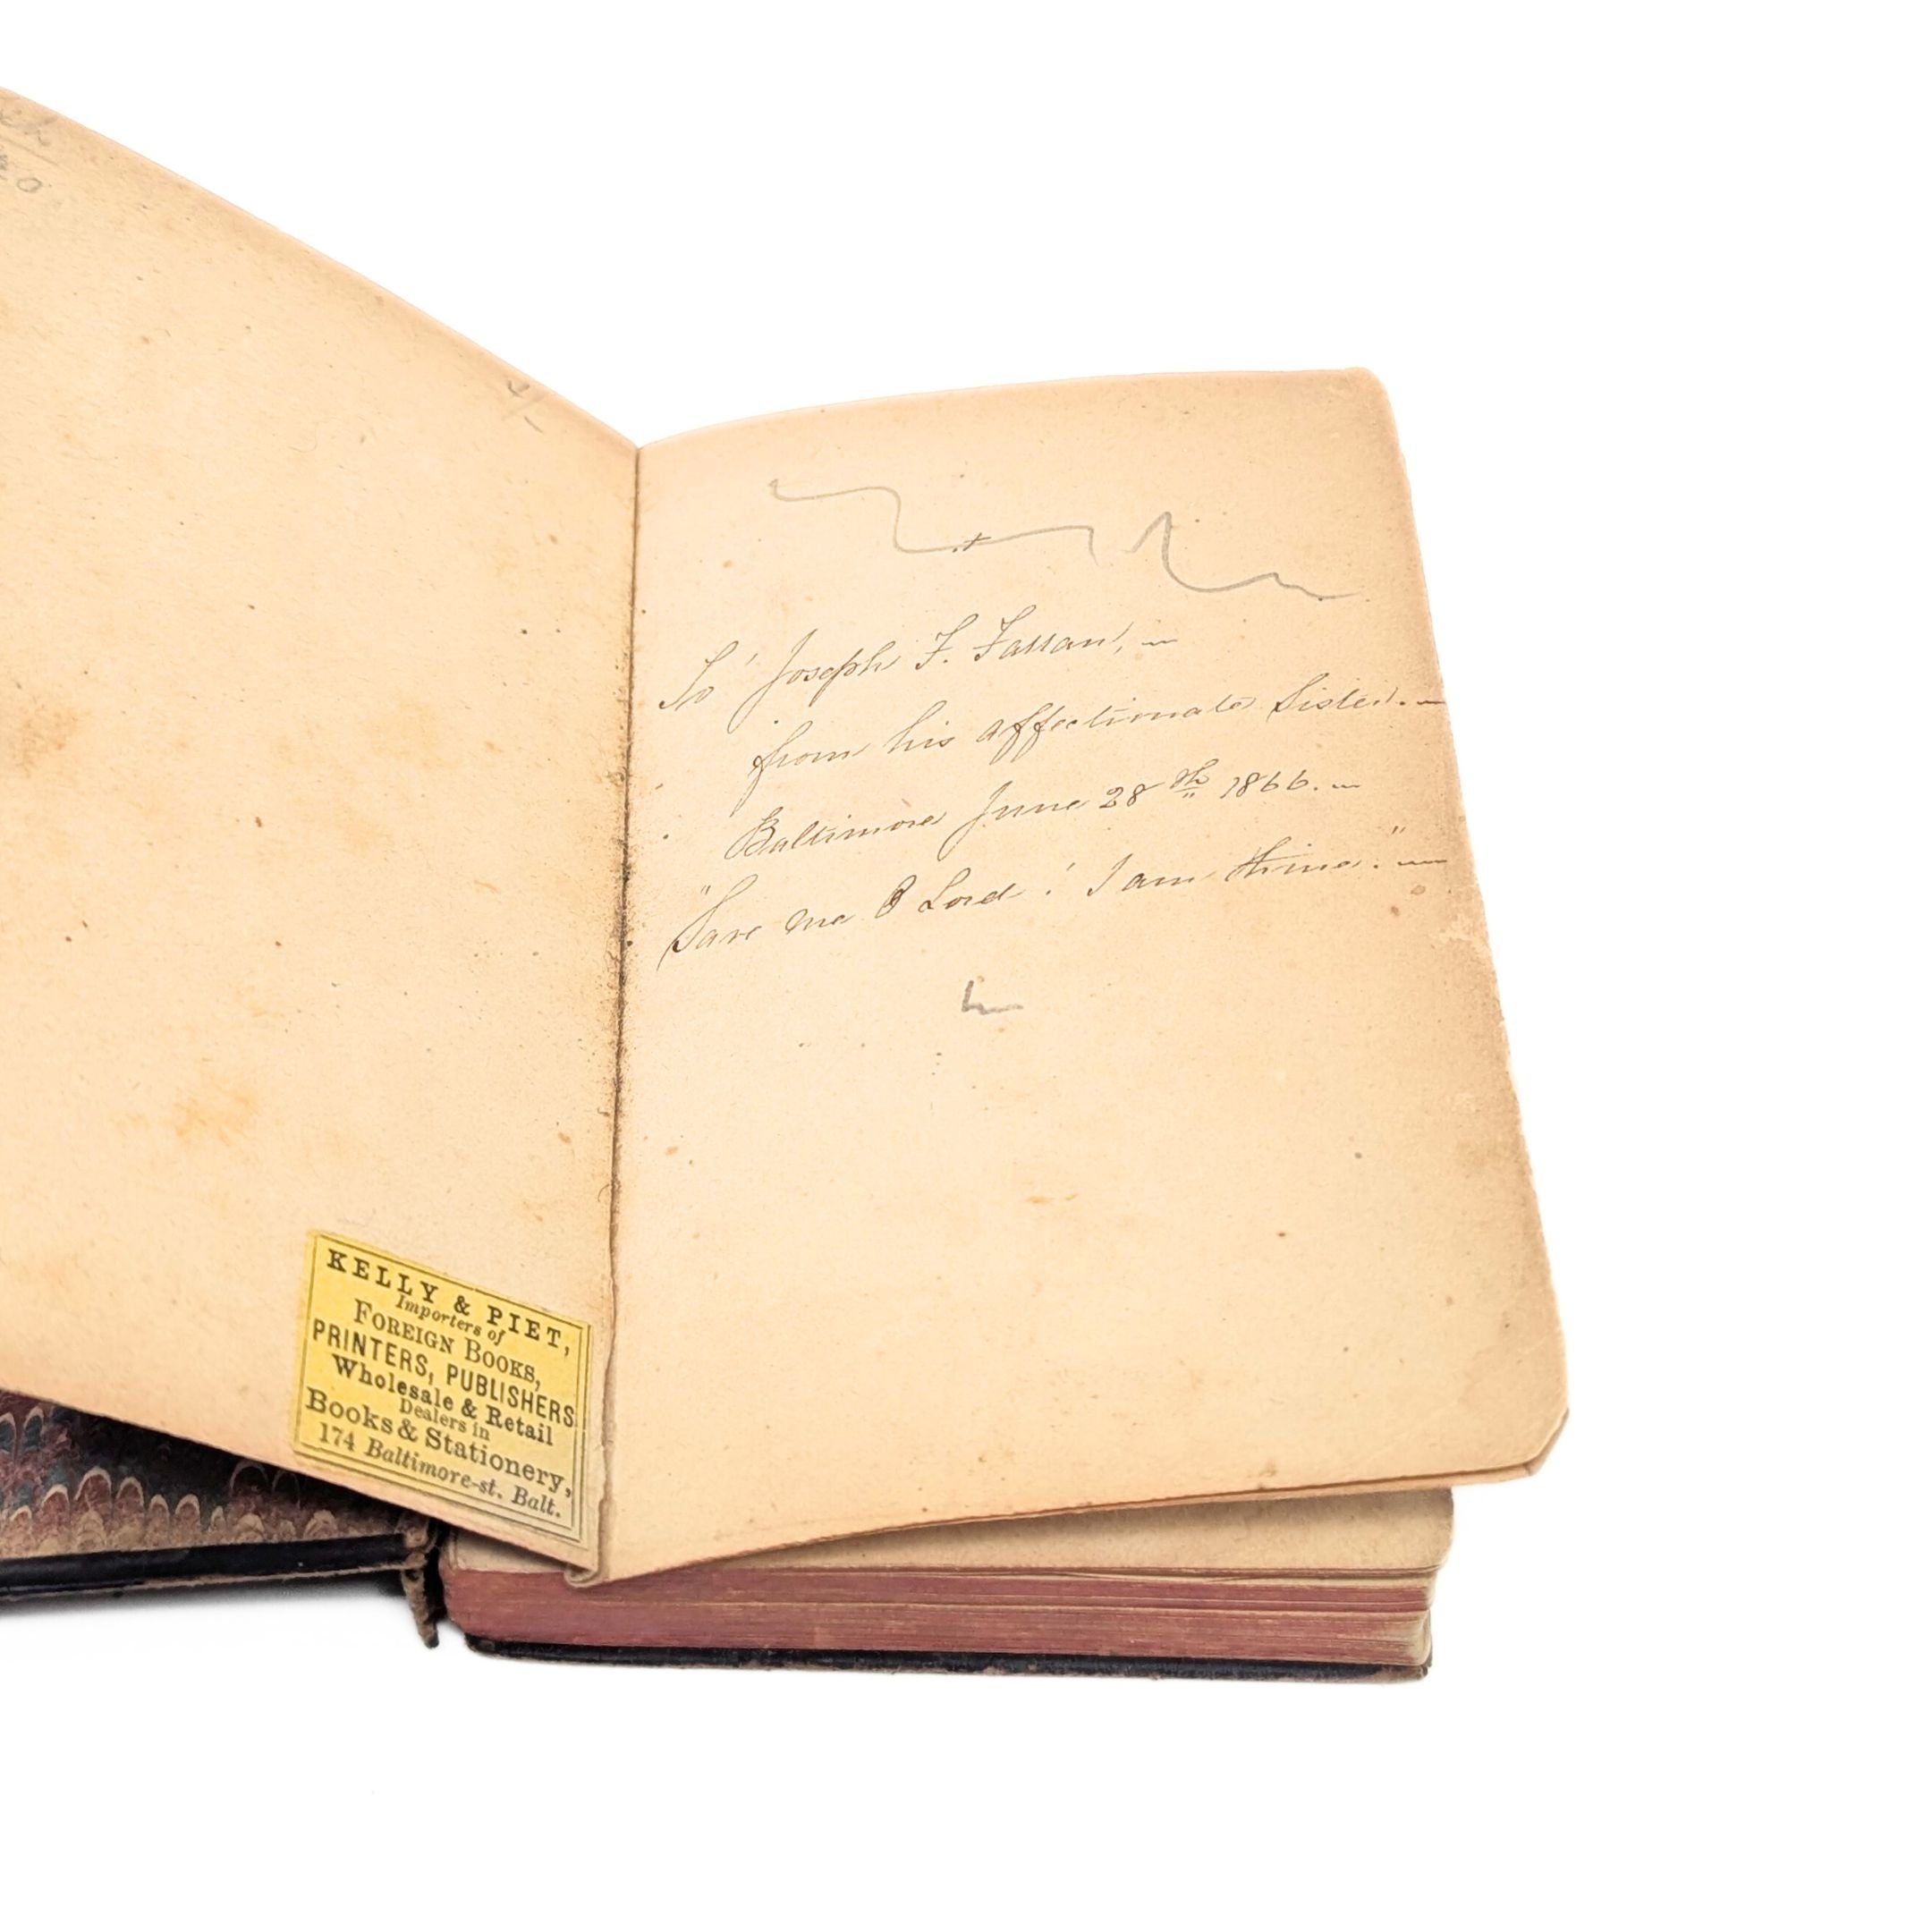 KELLY & PIET,
Importers of
FOREIGN BOOKS,
PRINTERS, PUBLISHERS
Wholesale & Retail
Dealers in
Books & Stationery,
174 Baltimore-st. Balt.
To Joseph F.
from his affectionate Sister.
Baltimore June 28th 1866.
"Save me O Lord! I am thine."